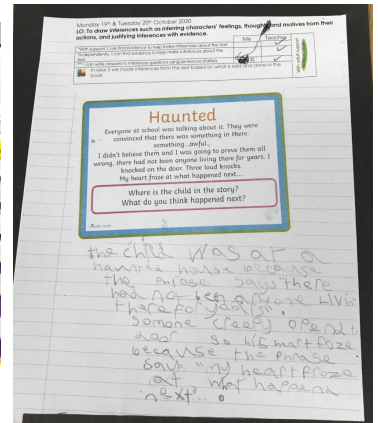 Monday 19th & Tuesday 20th October 2020
LO: To draw inferences such as inferring characters' feelings, thoughts and motives from their
actions, and justifying inferences with evidence.
Me Teacher
*With support I can find evidence to help make inferences about the text
*Independently, I can find evidence to help make inferences about the
text
I can write answers to inference questions using sentence starters
In year 2 we made inferences from the text based on what is said and done in the
book.
Haunted
Everyone at school was talking about it. They were
convinced that there was something in there,
something...awful...
I didn't believe them and I was going to prove them all
wrong, there had not been anyone living there for years. I
knocked on the door. Three loud knocks.
My heart froze at what happened next....
Where is the child in the story?
What do you think happened next?
the child was at a
haunted house because
the phrase says "there
had not been anyone Livin
there for years".
Somone creepy opend
door so his
because the phrase
says "my heart froze
at what happend
next"...